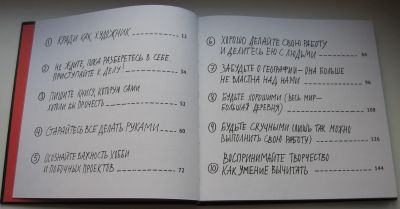 ① КРАДИ КАК ХУДОЖНИК 13
② НЕ ЖДИТЕ, ПОКА РАЗБЕРЕТЕСЬ В СЕБЕ.
ПРИСТУПАЙТЕ К ДЕЛУ! 34
③ ПИШИТЕ КНИГУ, КОТОРУЮ САМИ
ХОТЕЛИ БЫ ПРОЧЕСТЬ 52
④ СТАРАЙТЕСЬ ВСЕ ДЕЛАТЬ РУКАМИ 60
⑤ ОСОЗНАЙТЕ ВАЖНОСТЬ ХОББИ
И ПОБОЧНЫХ ПРОЕКТОВ 72
⑥ ХОРОШО ДЕЛАЙТЕ СВОЮ РАБОТУ
И ДЕЛИТЕСЬ ЕЮ С ЛЮДЬМИ
⑦ ЗАБУДЬТЕ О ГЕОГРАФИИ – ОНА БОЛЬШЕ
НЕ ВЛАСТНА НАД НАМИ
⑧ БУДЬТЕ ХОРОШИМИ (ВЕСЬ МИР –
БОЛЬШАЯ ДЕРЕВНЯ) 108
⑨ БУДЬТЕ СКУЧНЫМИ (ЛИШЬ ТАК МОЖНО
ВЫПОЛНИТЬ СВОЮ РАБОТУ) 126
⑩ ВОСПРИНИМАЙТЕ ТВОРЧЕСТВО
КАК УМЕНИЕ ВЫЧИТАТЬ 144